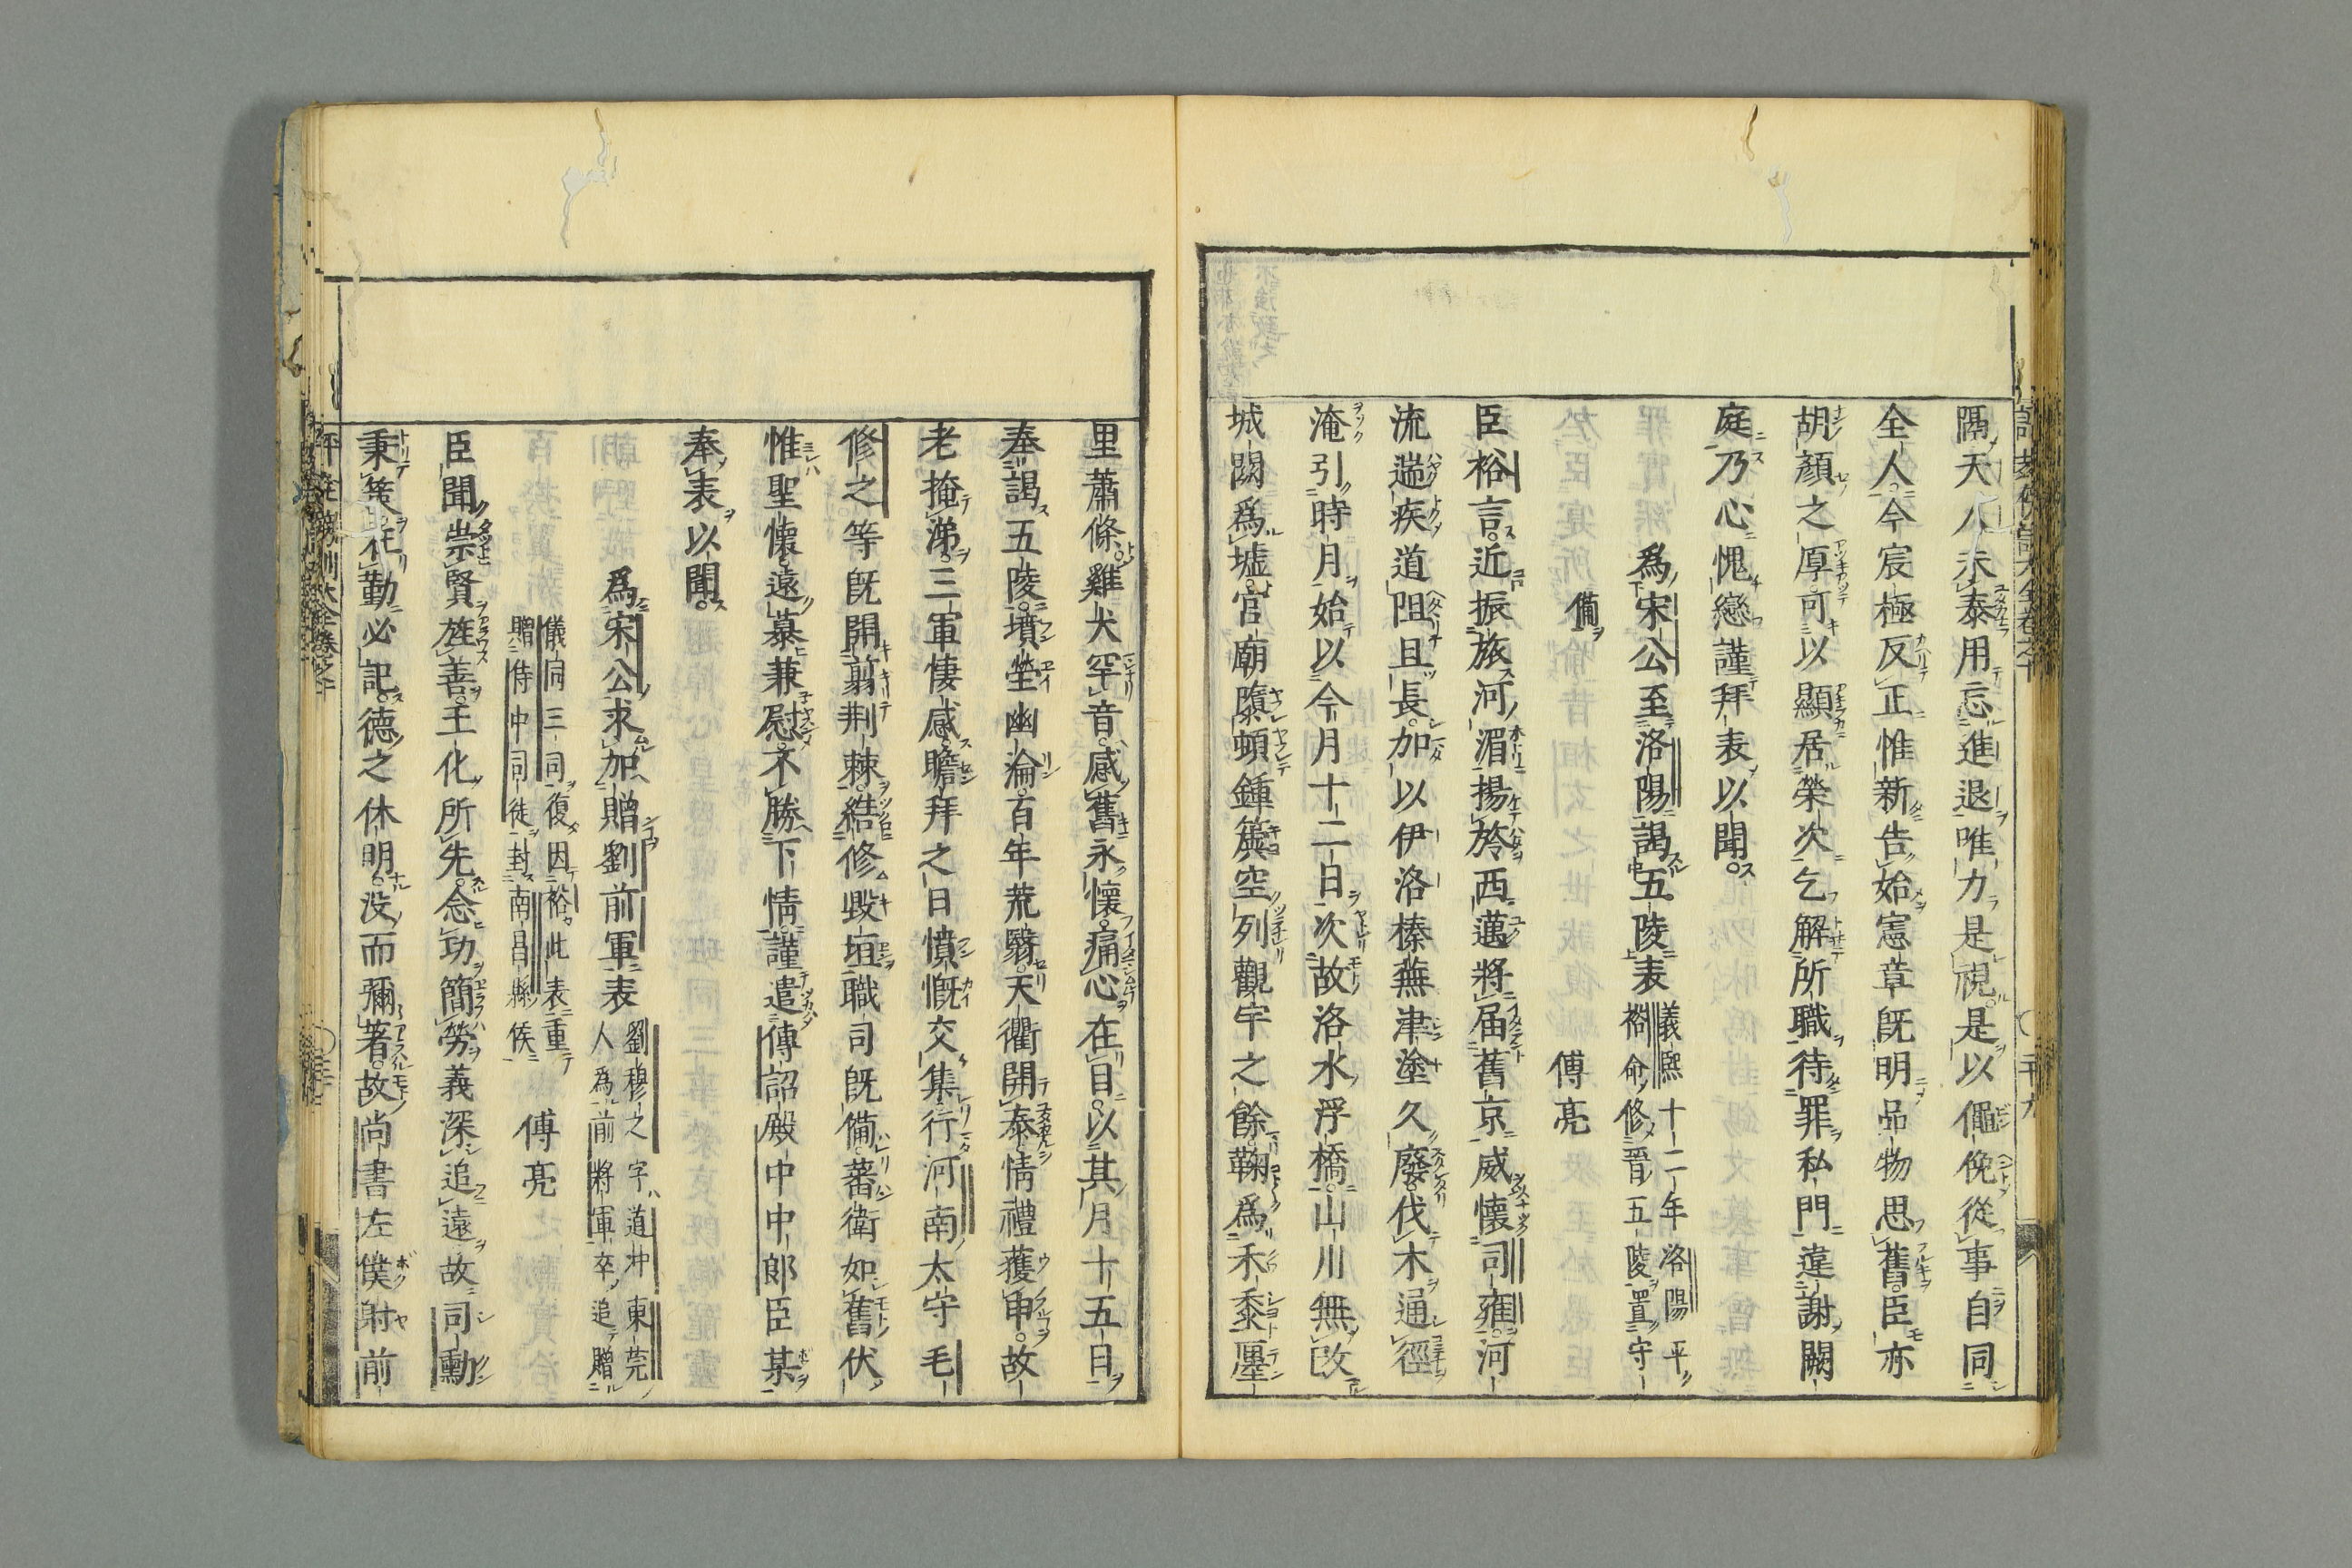 隔天人未泰用忘進退唯力是視是以僶俛從事自同
全人今宸極反正惟新告始憲章既明品物思舊臣亦
胡顏之厚可以顯居榮次乞解所職待罪私門違謝闕
庭乃心愧戀謹拜表以聞
爲宋公至洛陽謁五陵表
義熙十二年洛陽平
裕命修晉五陵置守
備
傅亮
臣裕言近振旅河湄揚旍西邁將屆舊京威懷司雍河
流遄疾道阻且長加以伊洛榛蕪津塗久廢伐木通徑
淹引時月始以今月十二日次故洛水浮橋山川無改
城闕爲墟宮廟隳頓鍾簴空列觀宇之餘鞠爲禾黍廛
里蕭條雞犬罕音感舊永懷痛心在目以其月十五日
奉謁五陵墳塋幽淪百年荒翳天衢開泰情禮獲申故
老掩涕三軍悽感瞻拜之日憤慨交集行河南太守毛
修之等既開翦荆棘繕修毀垣職司既備蕃衛如舊伏
惟聖懷遠慕兼慰不勝下情謹遣傳詔殿中中郎臣某
奉表以聞
爲宋公求加贈劉前軍表
劉穆之字道冲東莞
人為前將軍卒追贈
儀同三司復因裕此表重
贈侍中司徒封南昌縣侯
傅亮
臣聞崇賢旌善王化所先念功簡勞義深追遠故司勳
秉策在勤必記德之休明没而彌著故尚書左僕射前